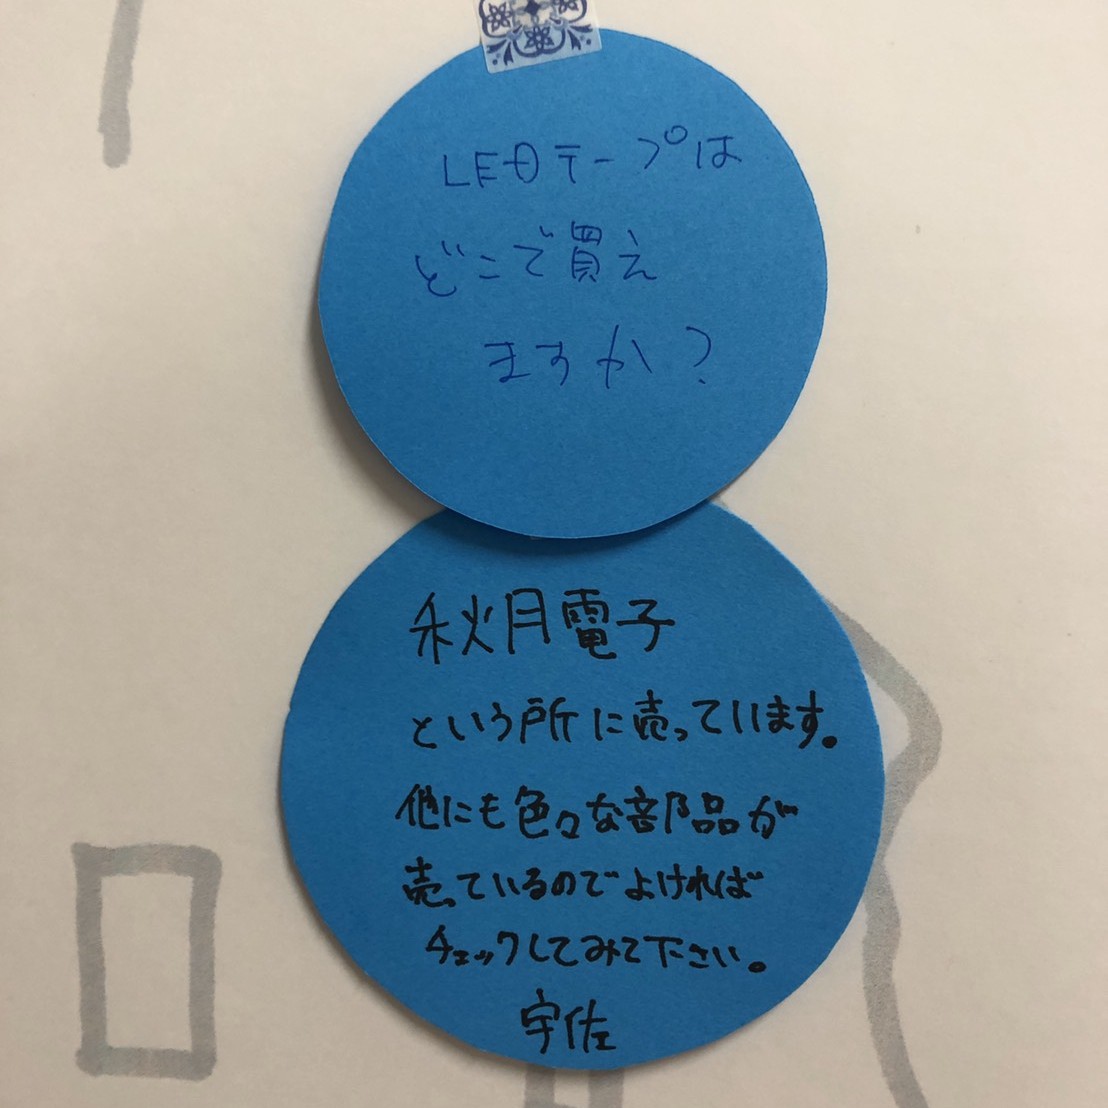 LEDテープは
どこで買え
ますか?
秋月電子
という所に売っています。
他にも色々な部品が
売っているのでよければ
チェックしてみて下さい。
宇佐